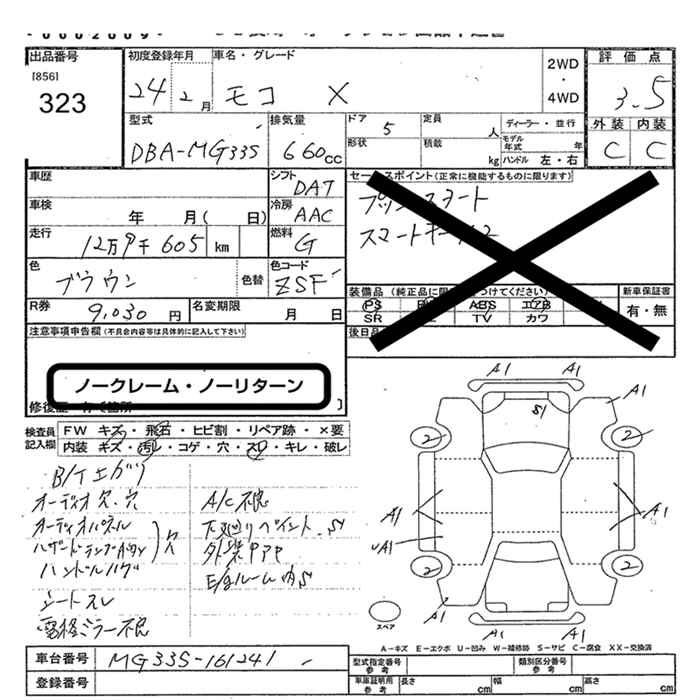 出品番号
[856]
323
初度登録年月
24年 2月
車名・グレード
モコ X
2WD
・
4WD
評価点
3.5
外装 内装
C C
型式
DBA-MG33S
排気量
660cc
ドア 5
形状
定員 人
積載 kg
ディーラー・並行
モデル年式 年
ハンドル 左・右
車歴
シフト DAT
車検 年 月( 日)
冷房 AAC
走行 12万9千605 km
燃料 G
色 ブラウン
色替
色コード ZSF
R券 9,030円
名変期限 月 日
セールスポイント(正常に機能するものに限ります)
プッシュスタート
装備品
新車保証書
有・無
PS ABS エアB
SR TV カワ
後日品
注意事項申告欄(不具合内容等は具体的に記入して下さい)
ノークレーム・ノーリターン
検査員記入欄
FW キズ・飛石・ヒビ割・リペア跡・×要
内装 キズ・汚レ・コゲ・穴・スレ・キレ・破レ
オーディオ欠.穴
オーディオパネル
シートスレ
電格ミラー不良
A/C不良
下廻りペイント.S
外装PPP
E/gルーム内S
A1 A1
A1
S1
2 2
A1 A1
A1
2 2
A1
A1 A1
スペア
A-キズ E-エクボ U-凹み W-補修跡 S-サビ C-腐食 XX-交換済
車台番号 MG33S-161241
登録番号
型式指定番号 参考
類別区分番号 参考
車庫証明用 参考
長さ cm 幅 cm 高さ cm